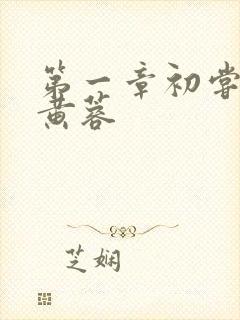 第一章初尝
黄蓉
芝娴